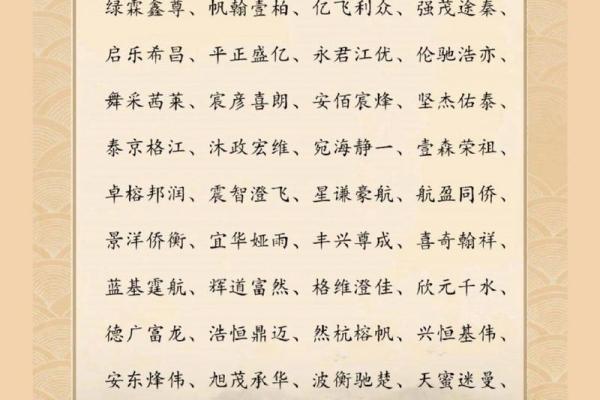 绿霖鑫尊、帆翰壹柏、亿飞利众、强茂途秦、
启乐希昌、平正盛亿、永君江优、伦驰浩亦、
舞采茜莱、宸彦喜朗、安佰宸烽、坚杰佑泰、
泰京格江、沐政宏维、宛海静一、壹森荣祖、
卓榕邦润、震智澄飞、星谦豪航、航盈同侨、
景洋侨衡、宜华娅雨、丰兴尊成、喜奇翰祥、
蓝基霆航、辉道富然、格维澄佳、欣元千水、
德广富龙、浩恒鼎迈、然杭榕帆、兴恒基伟、
安东烽伟、旭茂承华、波衡驰楚、天蜜迷曼、